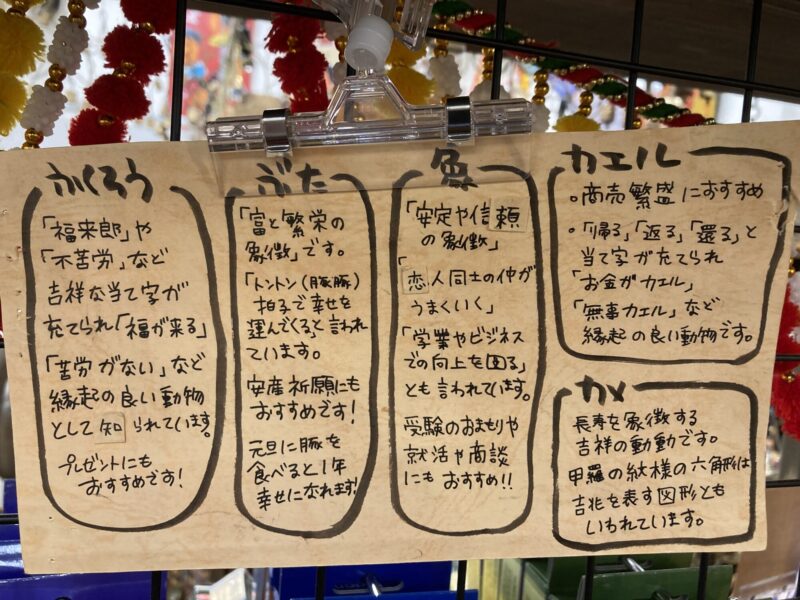 ふくろう
「福来郎」や
「不苦労」など
吉祥な当て字が
充てられ「福が来る」
「苦労がない」など
縁起の良い動物
として知られています。
プレゼントにも
おすすめです!
ぶた
「富と繁栄の
象徴」です。
「トントン(豚豚)
拍子で幸せを
運んでくると言われ
ています。
安産祈願にも
おすすめです!
元旦に豚を
食べると1年
幸せになれます!
象
「安定や信頼
の象徴」
「恋人同士の仲が
うまくいく」
「学業やビジネス
での向上を図る」
とも言われています。
受験のおまもりや
就活や商談
にもおすすめ!!
カエル
。商売繁盛におすすめ
。「帰る」「返る」「還る」と
当て字が充てられ
「お金がカエル」
「無事カエル」など
縁起の良い動物です。
カメ
長寿を象徴する
吉祥の動動です。
甲羅の紋様の六角形は
吉兆を表す図形とも
いわれています。